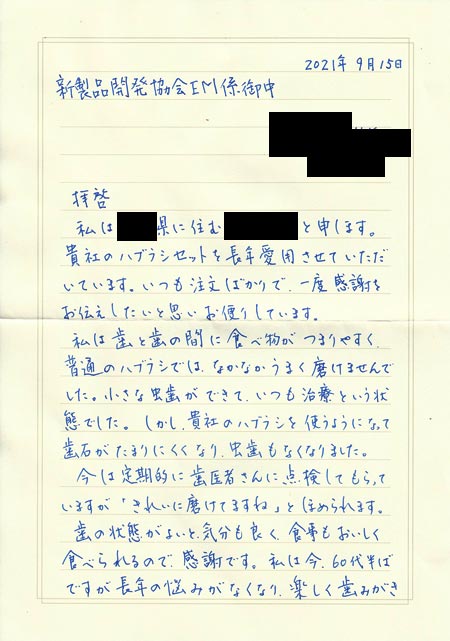 2021年 9月15日
新製品開発協会EM係御中
拝啓
私は 県に住む と申します。
貴社のハブラシセットを長年愛用させていただ
いています。いつも注文ばかりで、一度感謝を
お伝えしたいと思いお便りしています。
私は歯と歯の間に食べ物がつまりやすく、
普通のハブラシでは、なかなかうまく磨けませんで
した。小さな虫歯ができて、いつも治療という状
態でした。しかし、貴社のハブラシを使うようになって
歯石がたまりにくくなり、虫歯もなくなりました。
今は定期的に歯医者さんに点検してもらって
いますが「きれいに磨けてますね」とほめられます。
歯の状態がよいと、気分も良く、食事もおいしく
食べられるので、感謝です。私は今、60代半ば
ですが長年の悩みがなくなり、楽しく歯みがき